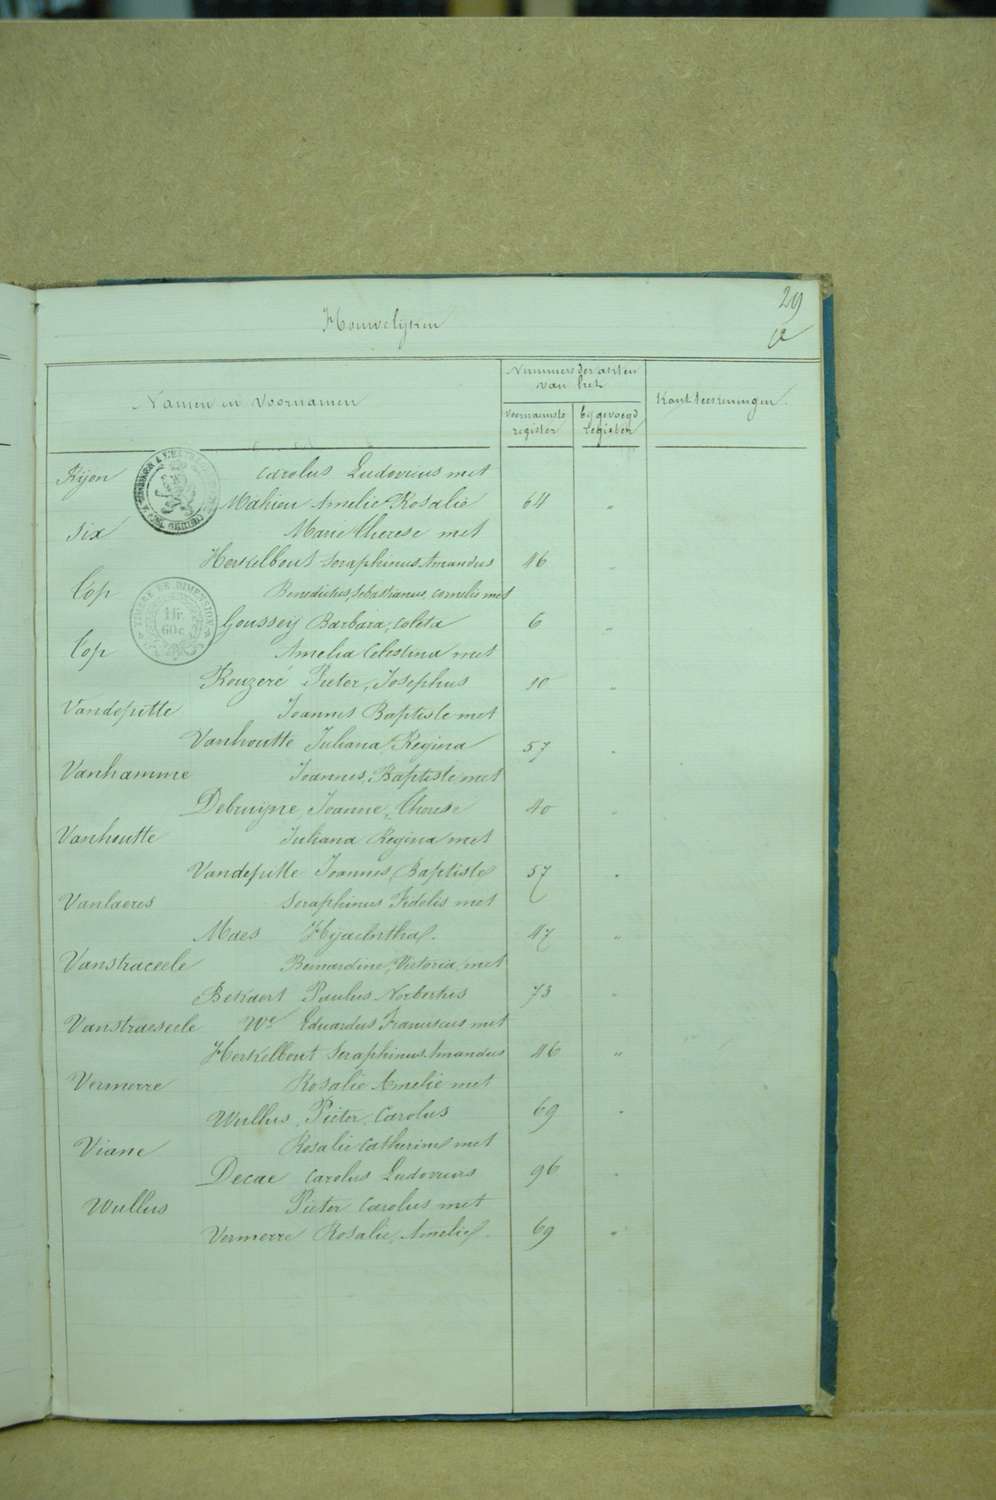 29
Houwelijken
Namen en Voornamen
Nummers der akten van het
voornaamste register
bijgevoegd register
Kant teekeningen.
Rijon Carolus Ludovicus met
Mahieu Amelie Rosalie 64 "
Six Marie Therese met
Herkelbout Seraphinus Amandus 46 "
Top Benedictus, Sebastianus, Cornelis met
Goussey Barbara, Coleta 6 "
Top Amelia Celestina met
Rouzeré Pieter, Josephus 10 "
Vandepitte Joannes Baptiste met
Vanhoutte Juliana Regina 57 "
Vanhamme Joannes, Baptiste met
Debruijne, Joanne, Therese 40 "
Vanhoutte Juliana Regina met
Vandepitte Joannes, Baptiste 57 "
Vanlaeres Seraphinus Fidelis met
Maes Hyacintha. 47 "
Vanstraceele Bernardine, Victoria, met
Bekaert Paulus Norbertus 73 "
Vanstraeseele We Eduardus Franciscus met
Herkelbout Seraphinus Amandus 46 "
Vermerre Rosalie Amelie met
Wullus, Pieter, Carolus 69 "
Viane Rosalie Catherine met
Decae Carolus Ludovicus 96 "
Wullus Pieter Carolus met
Vermerre Rosalie, Amelie. 69 "
TIMBRE DE DIMENSION
1 fr
60 c